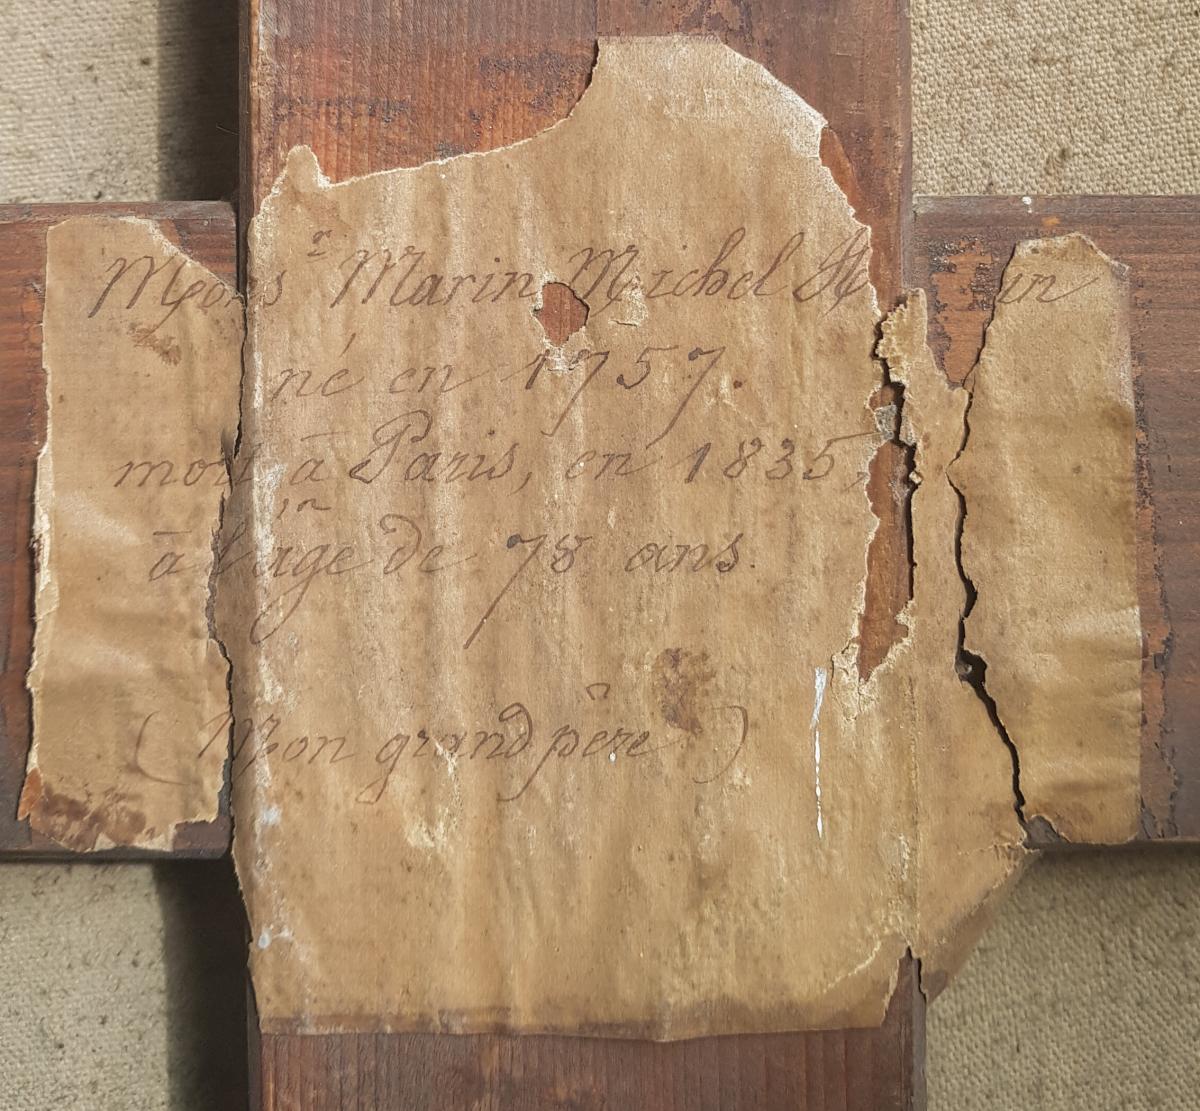 Mons^r Marin Michel H in
né en 1757.
mort à Paris, en 1835,
à l'âge de 78 ans.
(Mon grand père)